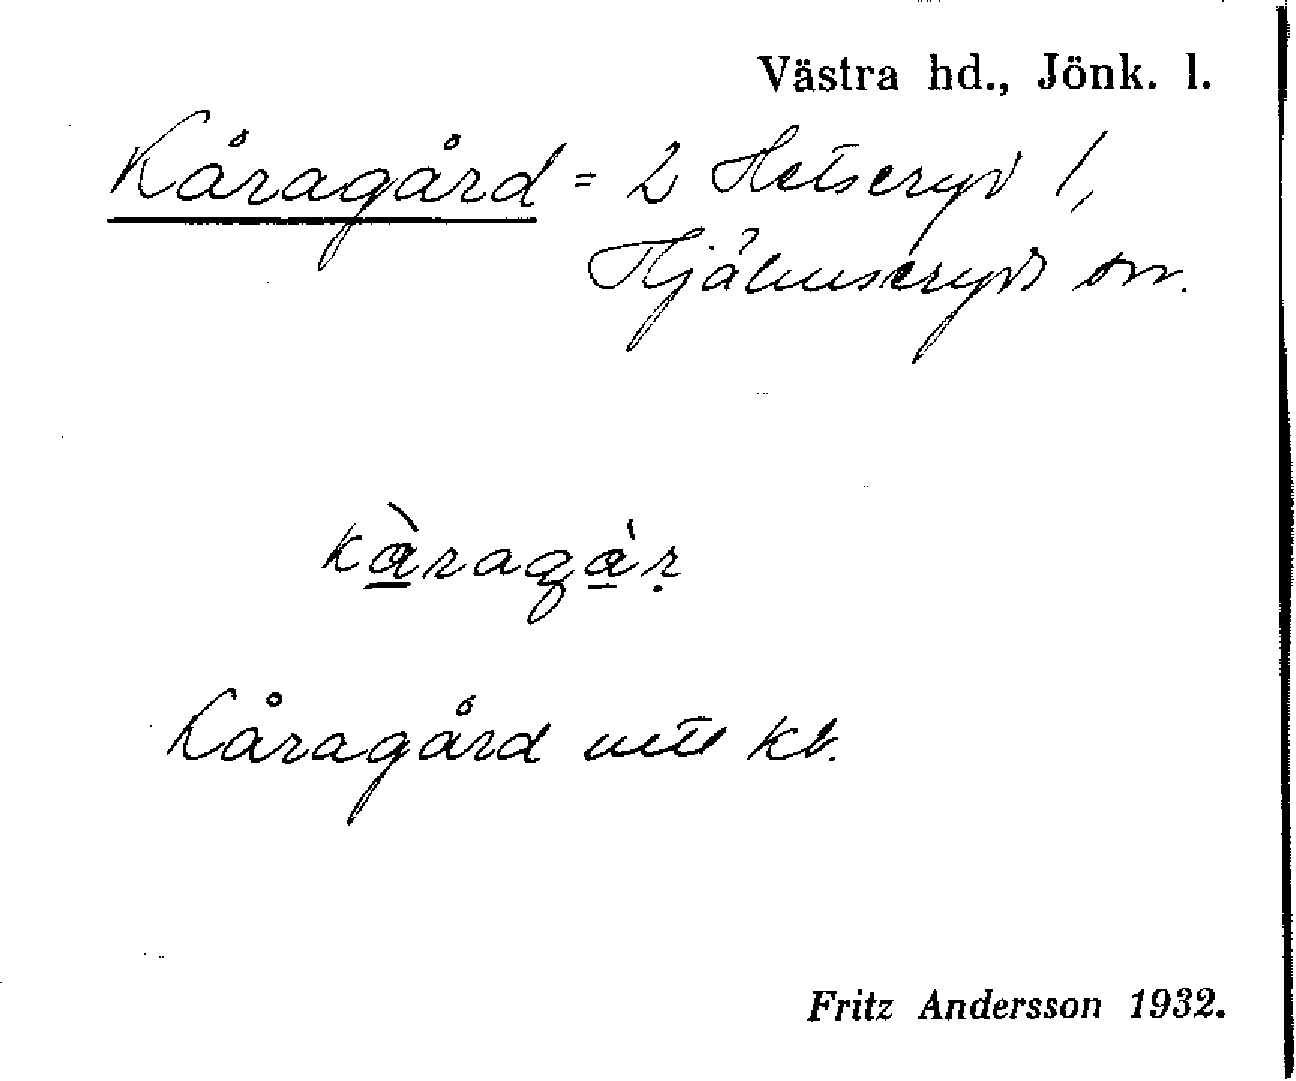 Västra hd., Jönk. l.
Kåragård = 2 Hetseryd 1,
Hjälmseryds sn.
kàragàṛ
Kåragård uttl kb.
Fritz Andersson 1932.